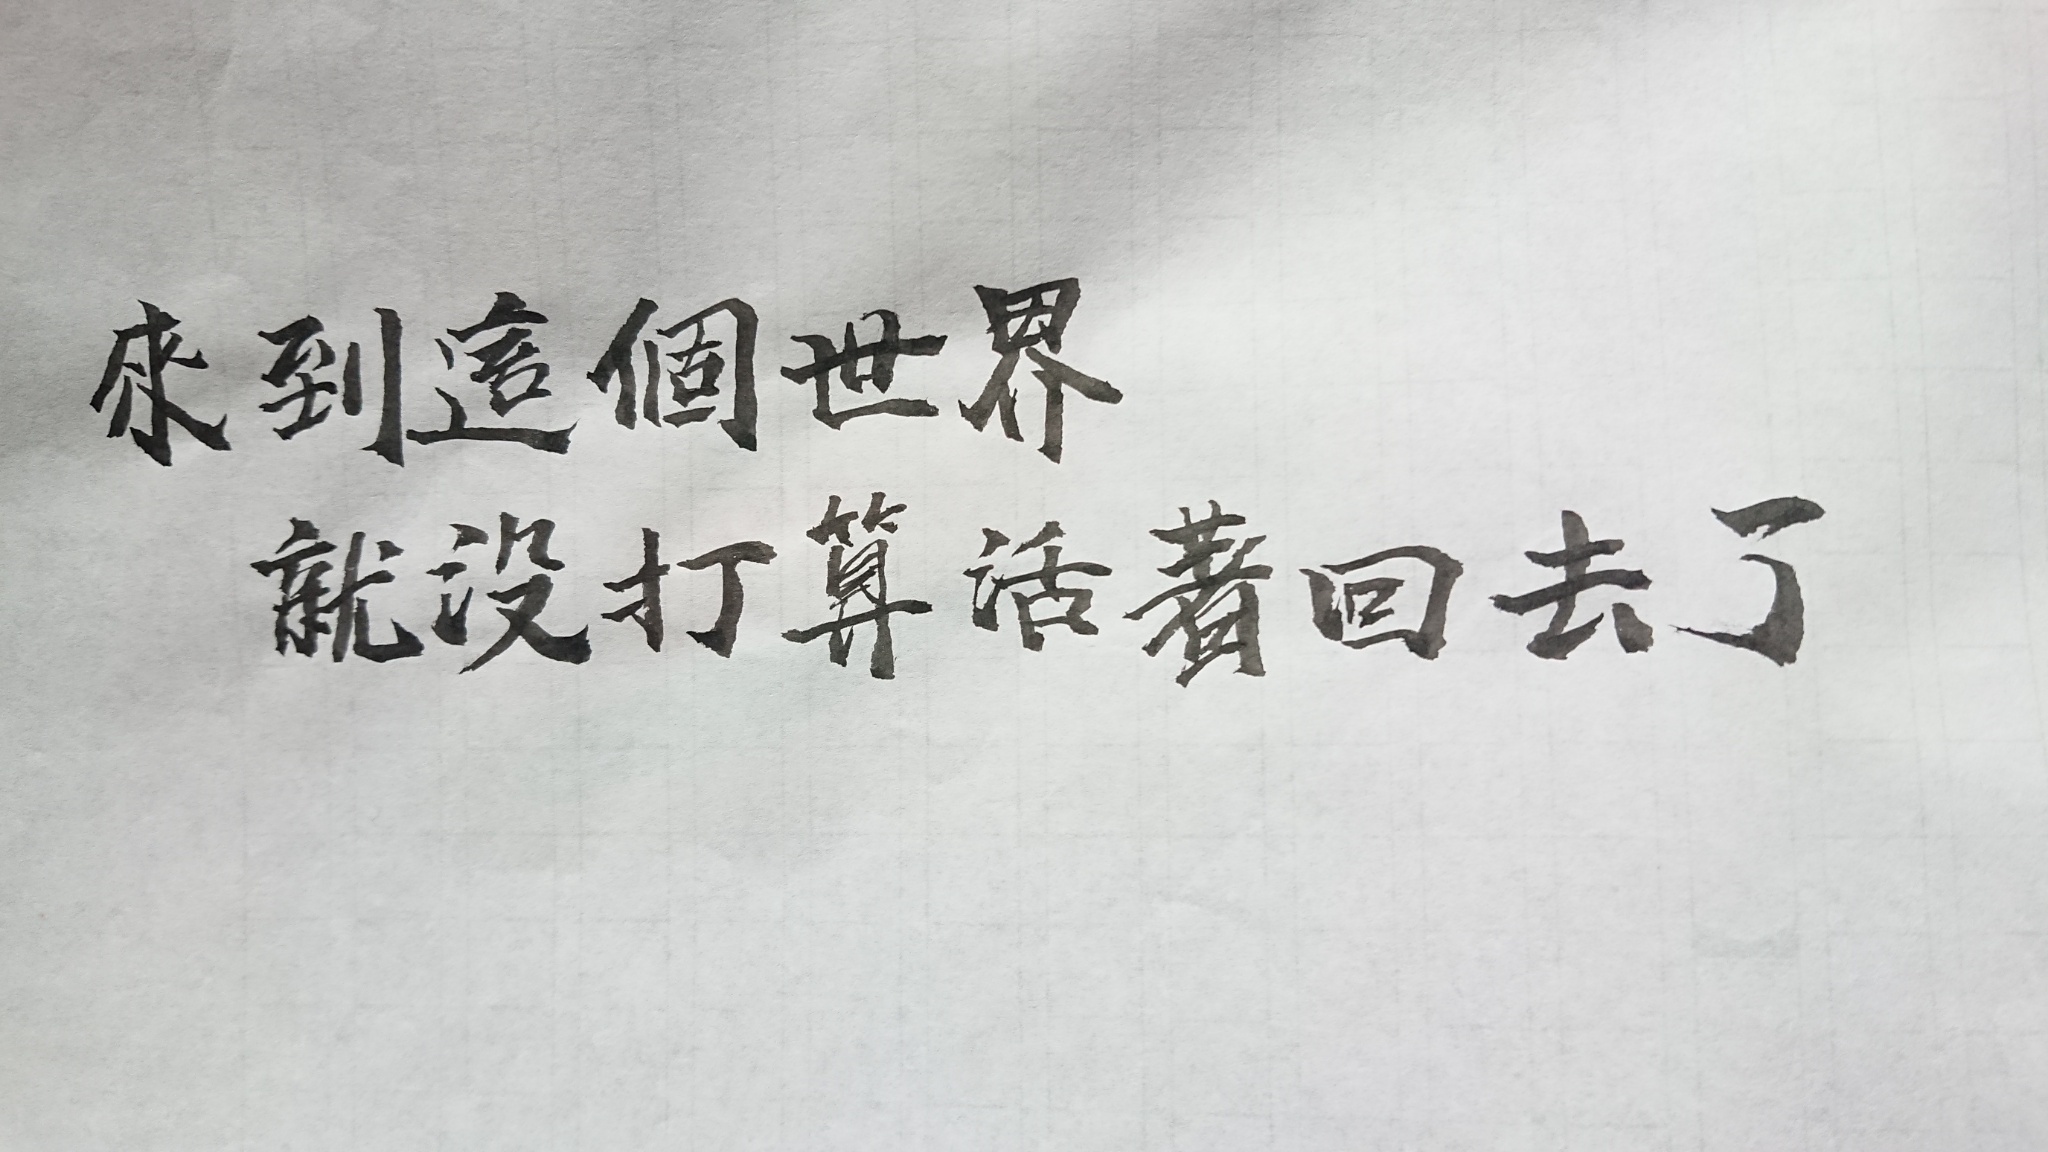 來到這個世界
就没打算活著回去了